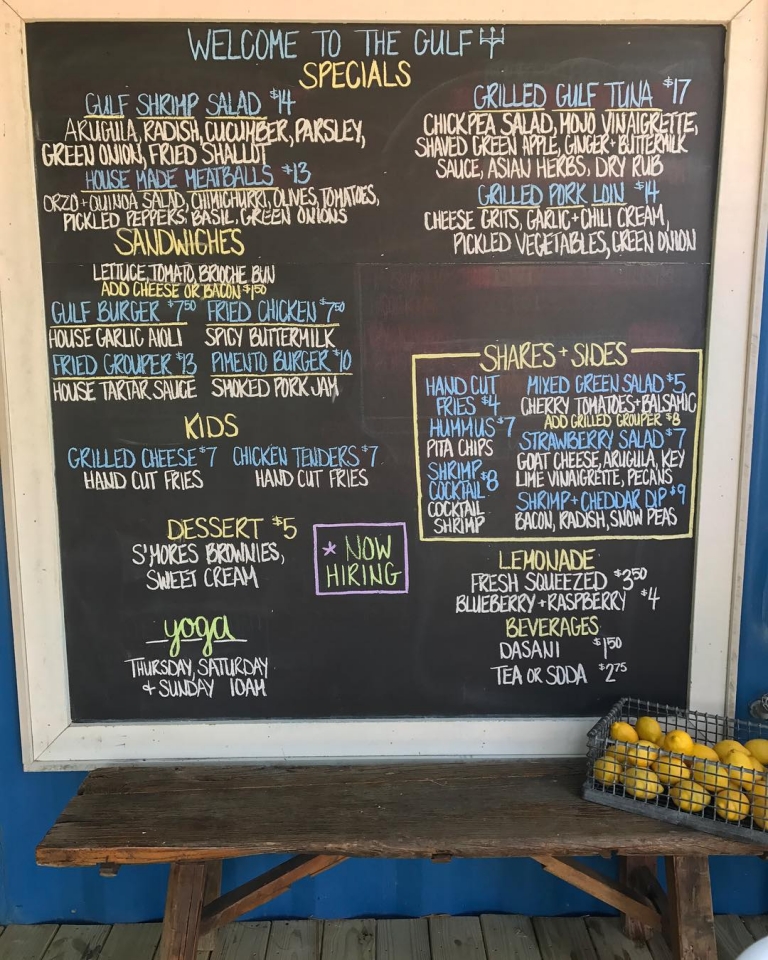 WELCOME TO THE GULF
SPECIALS
GULF SHRIMP SALAD $14
ARUGULA, RADISH, CUCUMBER, PARSLEY,
GREEN ONION, FRIED SHALLOT
HOUSE MADE MEATBALLS $13
ORZO + QUINOA SALAD, CHIMICHURRI, OLIVES, TOMATOES,
PICKLED PEPPERS, BASIL, GREEN ONIONS
GRILLED GULF TUNA $17
CHICKPEA SALAD, MOJO VINAIGRETTE,
SHAVED GREEN APPLE, GINGER + BUTTERMILK
SAUCE, ASIAN HERBS, DRY RUB
GRILLED PORK LOIN $14
CHEESE GRITS, GARLIC + CHILI CREAM,
PICKLED VEGETABLES, GREEN ONION
SANDWICHES
LETTUCE, TOMATO, BRIOCHE BUN
ADD CHEESE OR BACON $1.50
GULF BURGER $7.50 FRIED CHICKEN $7.50
HOUSE GARLIC AIOLI SPICY BUTTERMILK
FRIED GROUPER $13 PIMENTO BURGER $10
HOUSE TARTAR SAUCE SMOKED PORK JAM
KIDS
GRILLED CHEESE $7 CHICKEN TENDERS $7
HAND CUT FRIES HAND CUT FRIES
DESSERT $5
S'MORES BROWNIES,
SWEET CREAM
* NOW
HIRING
yoga
THURSDAY, SATURDAY
+ SUNDAY 10AM
SHARES + SIDES
HAND CUT
FRIES $4
HUMMUS $7
PITA CHIPS
SHRIMP
COCKTAIL $8
COCKTAIL
SHRIMP
MIXED GREEN SALAD $5
CHERRY TOMATOES + BALSAMIC
ADD GRILLED GROUPER $8
STRAWBERRY SALAD $7
GOAT CHEESE, ARUGULA, KEY
LIME VINAIGRETTE, PECANS
SHRIMP + CHEDDAR DIP $9
BACON, RADISH, SNOW PEAS
LEMONADE
FRESH SQUEEZED $3.50
BLUEBERRY + RASPBERRY $4
BEVERAGES
DASANI $1.50
TEA OR SODA $2.75